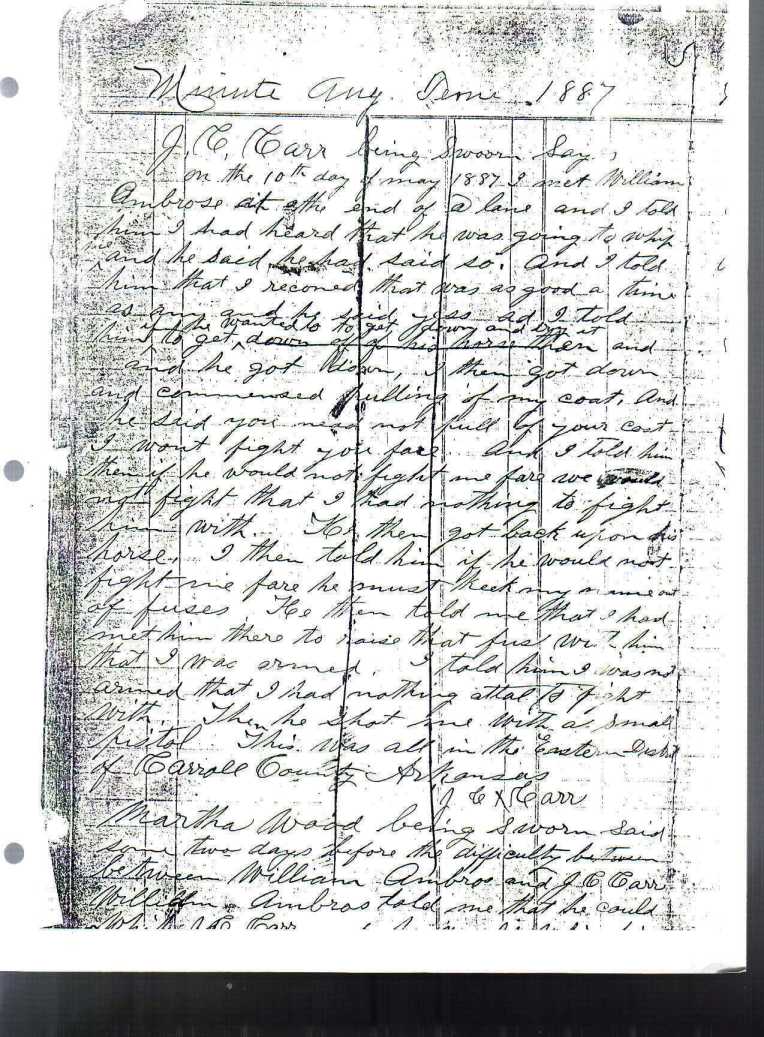 Minute Aug. Term 1887
J. C. Carr being Sworn Say,
on the 10th day of may 1887 I met William
Ambrose at the end of a lane and I told
him I had heard that he was going to whip
me
and he said he had said so. And I told
him that I reconed that was as good a time
as any and he said yess ad I told
if he wanted to to get down and try it
him to get down of of his horse then and
and he got down, I then got down
and commensed pulling of my coat. And
he said you nead not pull of your coat
I wont fight you fare. And I told him
then if he would not fight me fare we would
not fight that I had nothing to fight
him with. He then got back upon his
horse. I then told him if he would not
fight me fare he must keek my name out
of fuses He then told me that I had
met him there to raise that fus with him
that I was armed. I told him I was not
armed that I had nothing attal to fight
with. Then he shot me with a small
pistol. This was all in the Eastern District
of Carroll County Arkansas
J C X Carr
Martha Wood being Sworn Said
some two days before the difficulty between
between William Ambros and J C Carr
William Ambros told me that he could
J C Carr